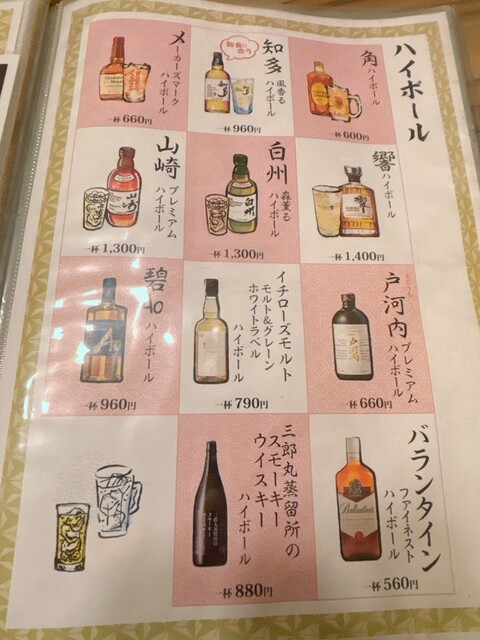 ハイボール
角
ハイボール
一杯 600円
和食に
合う
知多
風香る
ハイボール
一杯 960円
メーカーズマーク
ハイボール
Maker's
Mark
一杯 660円
響
ハイボール
響
一杯 1,400円
白州
森薫る
ハイボール
白州
一杯 1,300円
山崎
プレミアム
ハイボール
山崎
一杯 1,300円
戸河内
プレミアム
ハイボール
戸河内
一杯 660円
イチローズモルト
モルト&グレーン
ホワイトラベル
ハイボール
一杯 790円
碧Ao
ハイボール
Ao
一杯 960円
バランタイン
ファイネスト
ハイボール
Ballantine's
一杯 560円
三郎丸蒸留所の
スモーキー
ウイスキー
ハイボール
一杯 880円